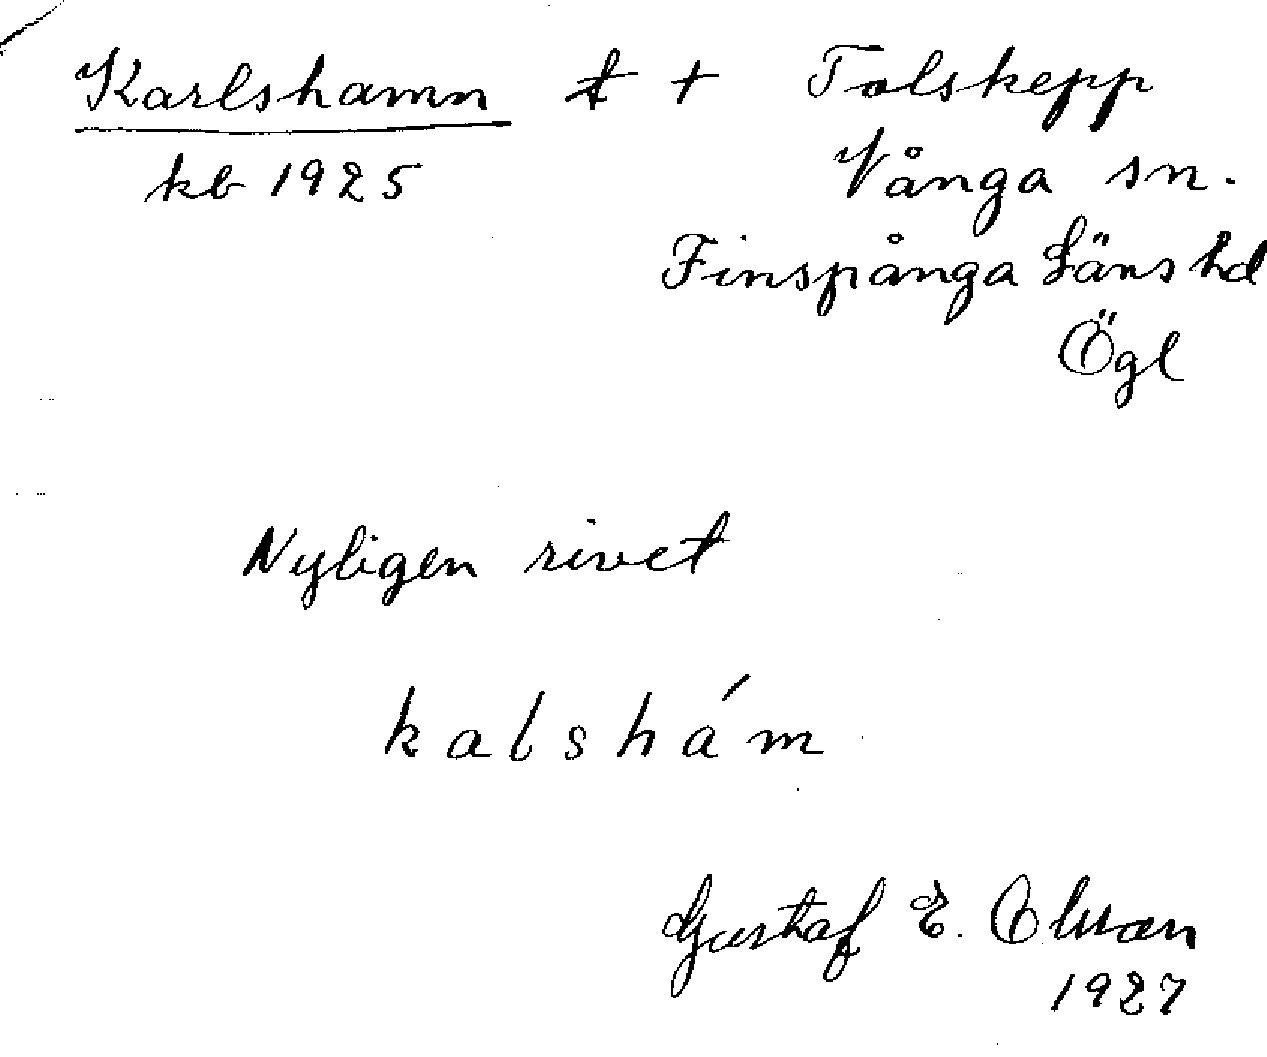 Karlshamn t + Tolskepp
kb 1925
Vånga sn.
Finspånga Läns hd
Ögl
Nyligen rivet
kalshá´m
Gustaf E. Olsson
1927